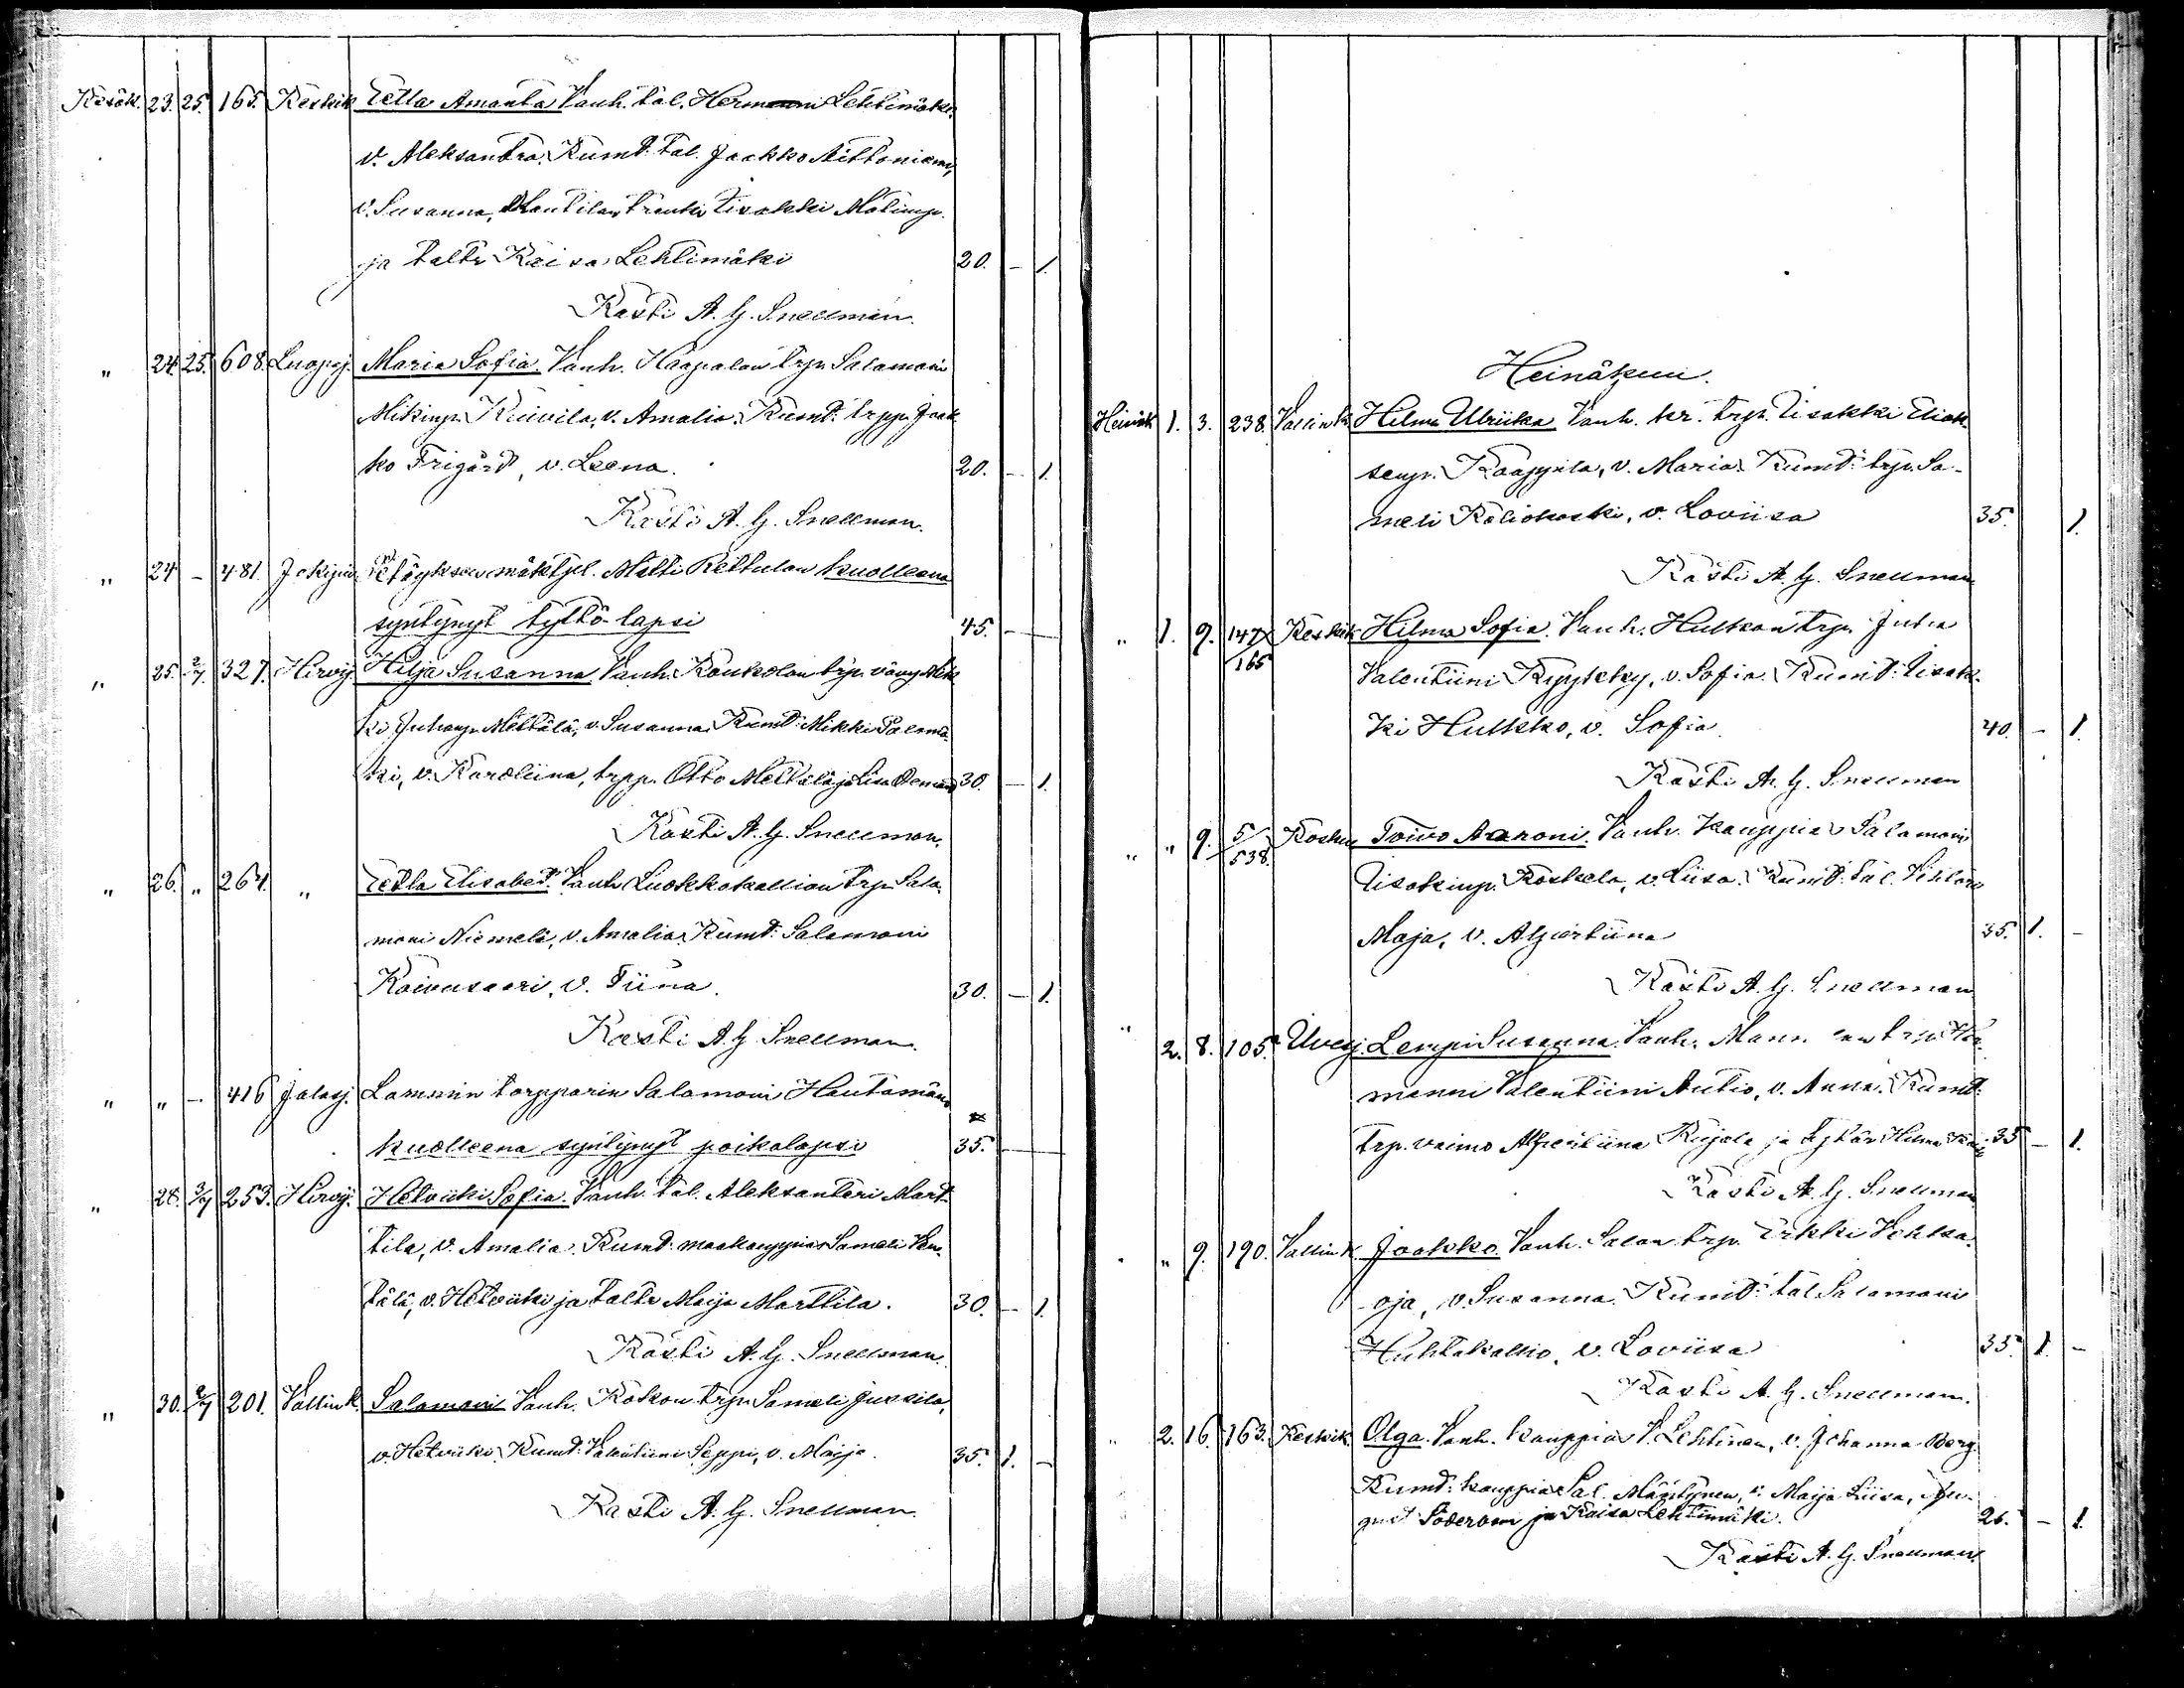 Kesäk. 23. 25. 165. Keskik. Tella Amanta Vanh. tal. Hermanni Lehtimäki
v. Aleksantra. Kumd. tal. Jaakko Aittoniemi,
v. Susanna, trenki Iisakki Matinp.
ja taltr Kaisa Lehtimäki 20. – 1.
Kasti A. G. Snellman.
" 24. 25. 608. Luopaj. Maria Sofia. Vanh. Haapalan trp. Salamoni
Mikinp. Kiivilä, v. Amalia. Kumd: trpp. Jaak
ko Frigård, v. Leena. 20. – 1.
Kasti A. G. Snellman.
" 24 – 481 Jokipii Matti Rettulan kuolleena
syntynyt tyttö-lapsi 45. –
" 25. 2/7. 327. Hirvij. Hilja Susanna Vanh. Koukolan trp. vävy Mik
ki Juhanp. Mettälä, v. Susanna. Kumd: Mikki Salomä-
ki, v. Karoliina, trpp. Otto Mettälä ja Liisa 30. – 1.
Kasti A. G. Snellman.
" 26. " 264. " Tekla Elisabed. Vanh Luokkokallion trp. Sala-
moni Niemelä, v. Amalia. Kumd: Salamoni
Koivusaari, v. Tiina. 30. – 1.
Kasti A. G. Snellman.
" " – 416 Jalasj. Lammin torpparin Salamoni Hautamäen
kuolleena syntynyt poikalapsi 35. –
" 28. 3/7 253. Hirvij. Hetviiki Sofia. Vanh. tal. Aleksanteri Mart-
tila, v. Amalia. Kumd: maakauppias Sameli Van-
tälä, v. Hetviiki ja taltr Maija Marttila. 30. – 1.
Kasti A. G. Snellman.
" 30. 2/7 201. Vallink. Salamoni Vanh. Kokon trp. Sameli Jussila,
v. Hetviiki. Kumd: Valentiini Seppi, v. Maija. 35. 1. –
Kasti A. G. Snellman.
Heinäkuu.
Heinäk 1. 3. 238. Vallink. Hilma Ulriika Vanh. kr. trp. Iisakki Eliak-
senp. Kaappila, v. Maria. Kumd: trp. Sa-
meli Koliokoski, v. Loviisa 35. 1.
Kasti A. G. Snellman
" 1. 9. 147/165 Keskik. Hilma Sofia. Vanh. Hulkon trp. Juha
Valentiini Kyykky, v. Sofia. Kumd: Iisak-
ki Hulkko, v. Sofia 40. – 1.
Kasti A. G. Snellman
" " 9. 5/538. Koskue Toivo Aaroni. Vanh. Kauppias Salamoni
Iisakinp. Koskela, v. Liisa. Kumd: tal.
Maja, v. Alpertiina 35. 1. –
Kasti A. G. Snellman
" 2. 8. 105. Lempi Susanna. Vanh.
manni Valentiini Autio, v. Anna. Kumd:
trp. vaimo Alpertiina Kujala ja tytär Hilma 35 – 1.
Kasti A. G. Snellman
" " 9. 190. Vallink. Jaakko. Vanh. Salon trp. Erkki Vehka-
oja, v. Susanna. Kumd: tal Salamoni
Huhtakallio, v. Loviisa 35. 1. –
Kasti A. G. Snellman.
" 2. 16. 163. Keskik. Olga. Vanh. kauppias V. Lehtinen, v. Johanna Berg.
Kumd: kauppias Sal. Mäntynen, v. Maija Liisa, Au-
gust Söderbom ja Kaisa Lehtimäki. 26. – 1.
Kasti A. G. Snellman.